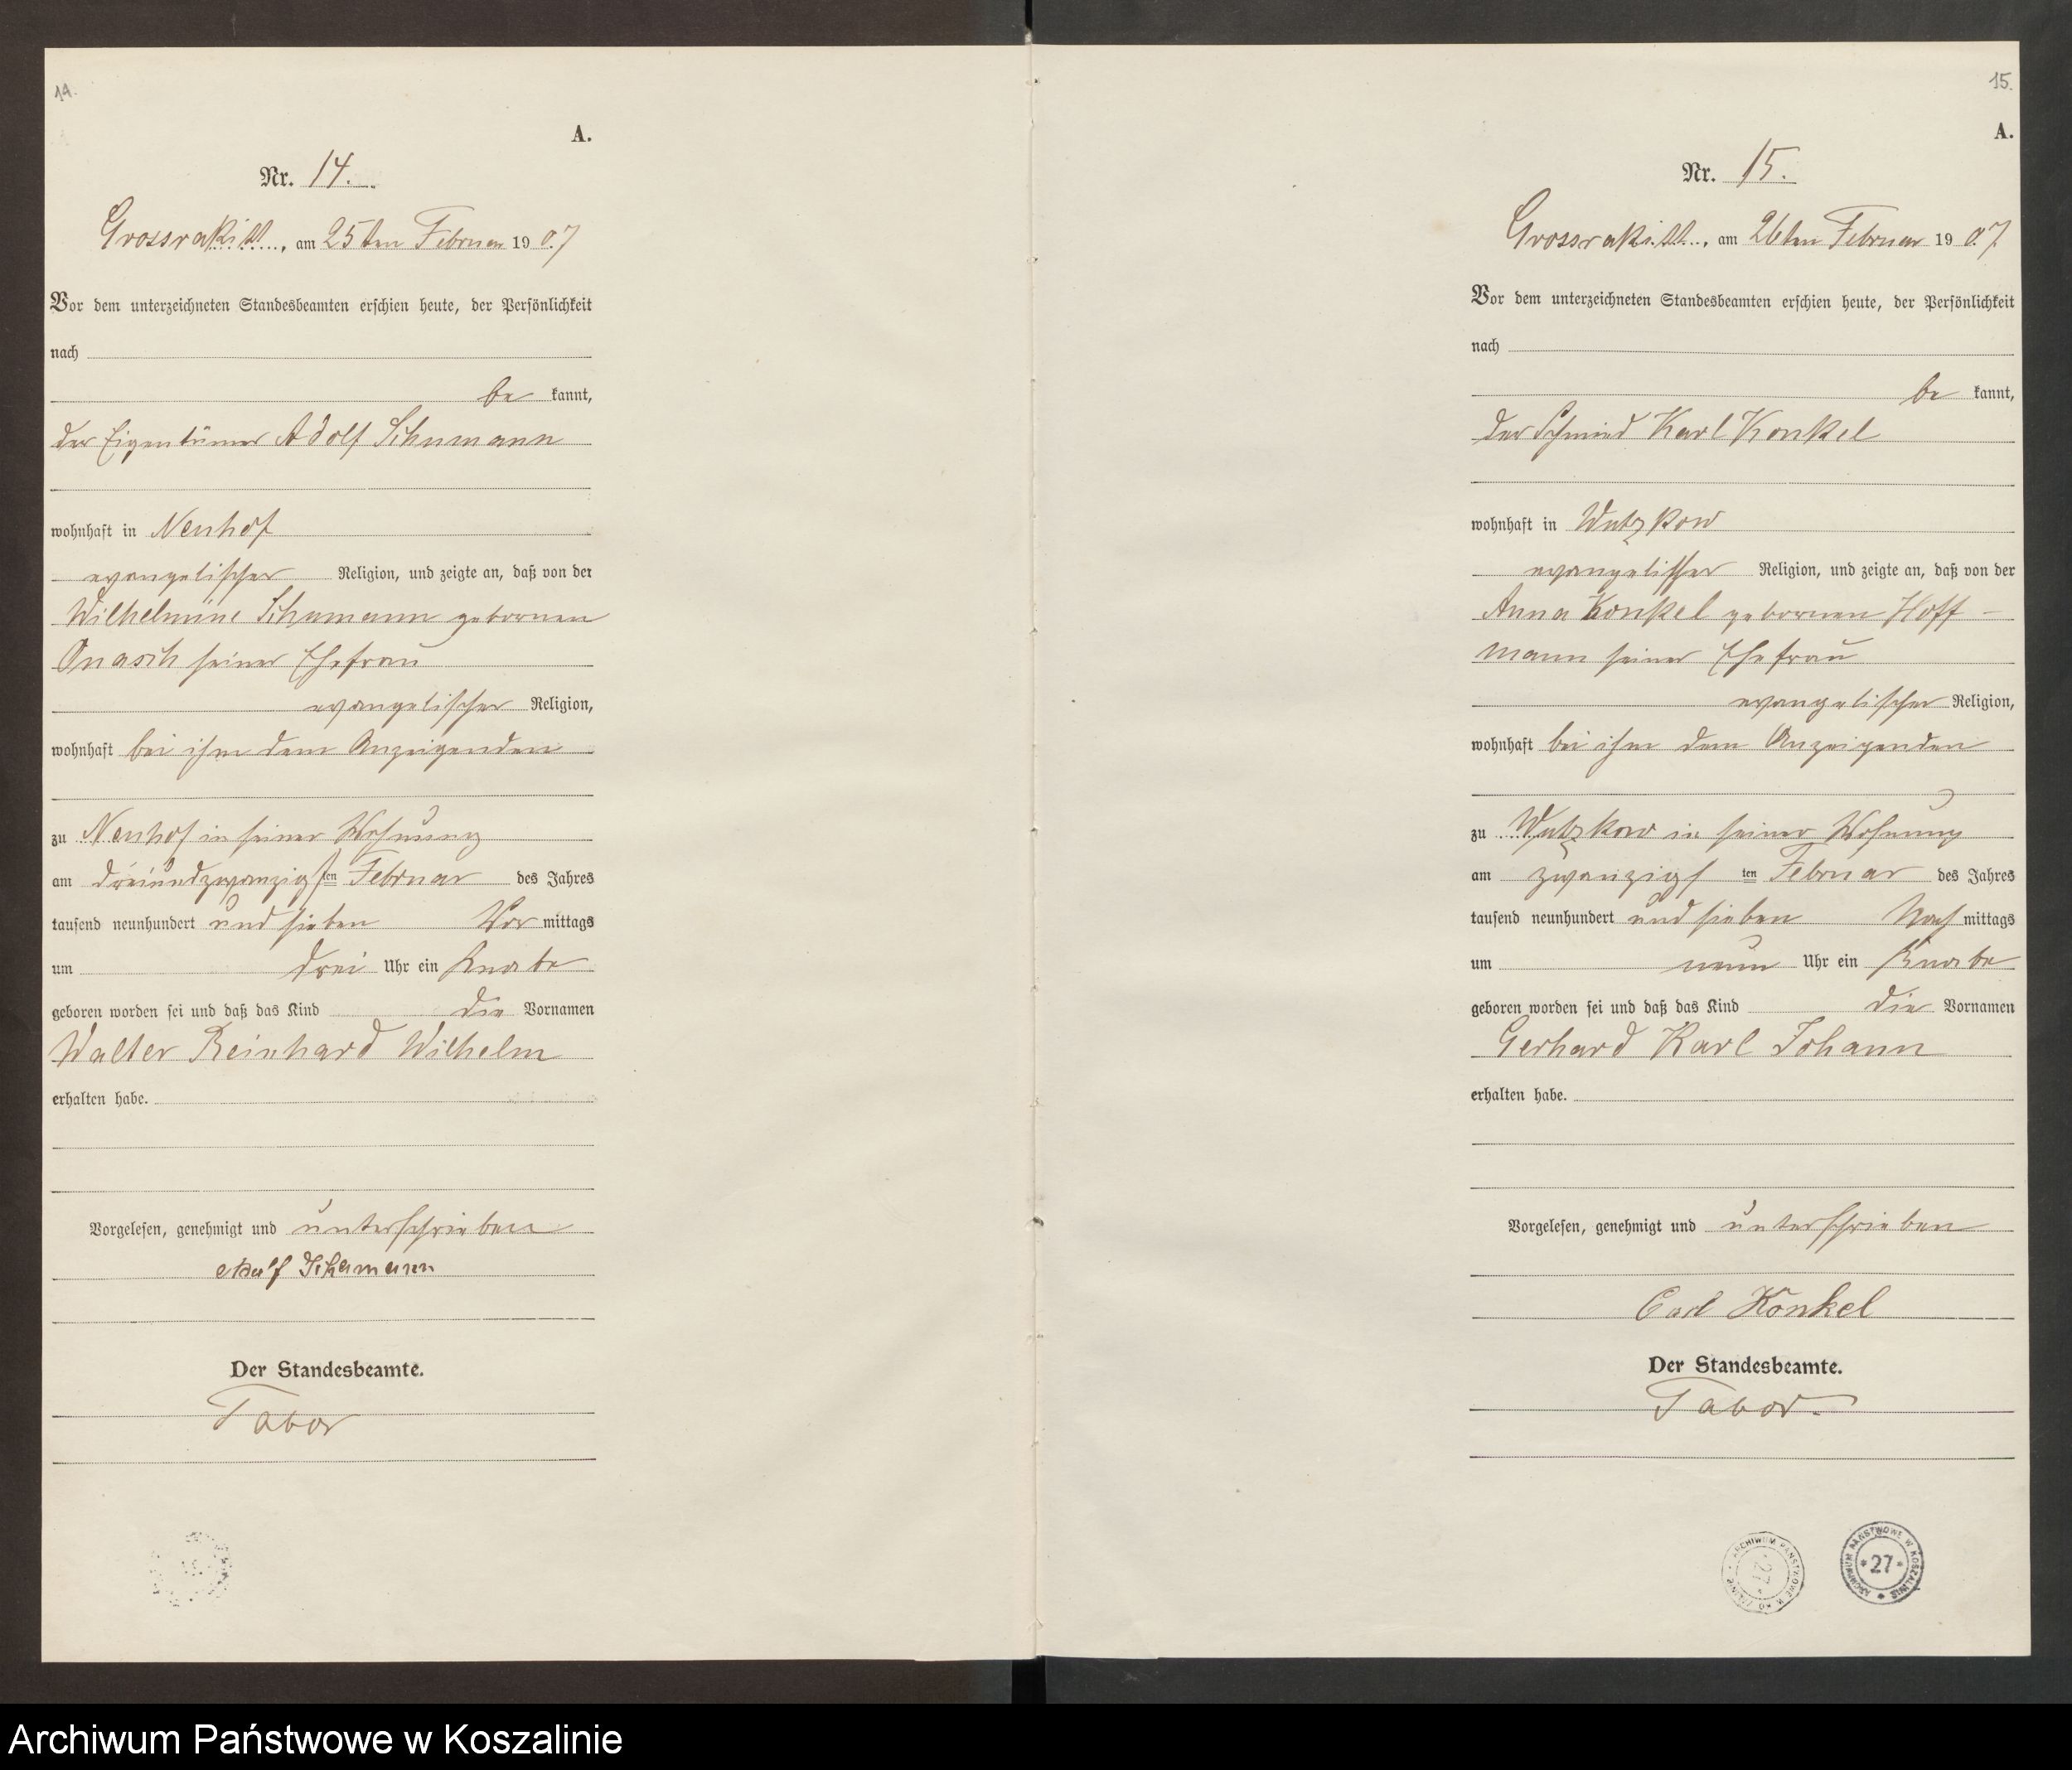 14.
A.
Nr. 14.
Grossrakitt, am 25ten Februar 1907
Vor dem unterzeichneten Standesbeamten erschien heute, der Persönlichkeit
nach
be kannt,
der Eigentümer Adolf Schumann
wohnhaft in Neuhof
evangelischer Religion, und zeigte an, daß von der
Wilhelmine Schumann gebornen
Onasch seiner Ehefrau
evangelischer Religion,
wohnhaft bei ihm dem Anzeigenden
zu Neuhof in seiner Wohnung
am dreiundzwanzigsten Februar des Jahres
tausend neunhundert und sieben Vor mittags
um drei Uhr ein Knabe
geboren worden sei und daß das Kind die Vornamen
Walter Reinhard Wilhelm
erhalten habe.
Vorgelesen, genehmigt und unterschrieben
Adolf Schumann
Der Standesbeamte.
Tabor
15.
A.
Nr. 15.
Grossrakitt, am 26ten Februar 1907
Vor dem unterzeichneten Standesbeamten erschien heute, der Persönlichkeit
nach
be kannt,
der Schmied Karl Konkel
wohnhaft in Wutzkow
evangelischer Religion, und zeigte an, daß von der
Anna Konkel gebornen Hoff-
mann seiner Ehefrau
evangelischer Religion,
wohnhaft bei ihm dem Anzeigenden
zu Wutzkow in seiner Wohnung
am zwanzigsten Februar des Jahres
tausend neunhundert und sieben Nach mittags
um neun Uhr ein Knabe
geboren worden sei und daß das Kind die Vornamen
Gerhard Karl Johann
erhalten habe.
Vorgelesen, genehmigt und unterschrieben
Carl Konkel
Der Standesbeamte.
Tabor.
ARCHIWUM PAŃSTWOWE W KOSZALINIE
27
ARCHIWUM PAŃSTWOWE W KOSZALINIE
* 27 *
Archiwum Państwowe w Koszalinie